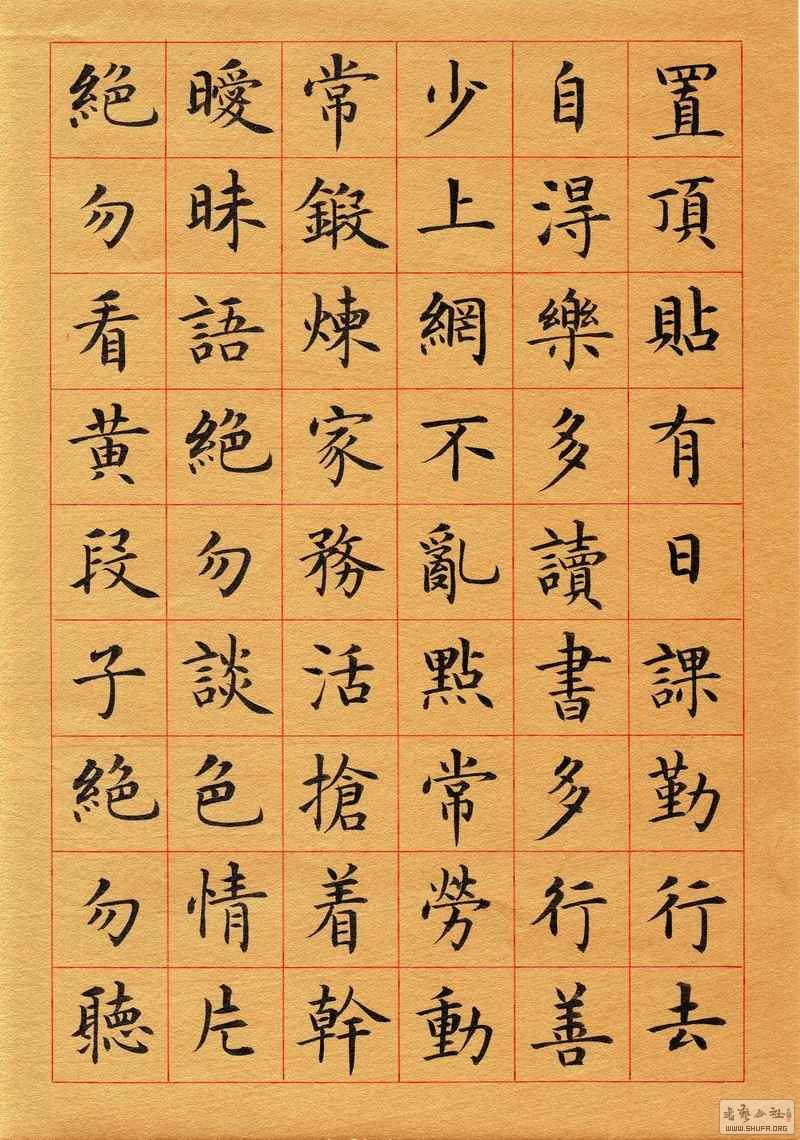 置頂貼有日課勤行去
自淂樂多讀書多行善
少上網不亂點常勞動
常鍛煉家務活搶着幹
曖昧語絕勿談色情片
絕勿看黃段子絕勿聽
WWW.SHUFA.ORG